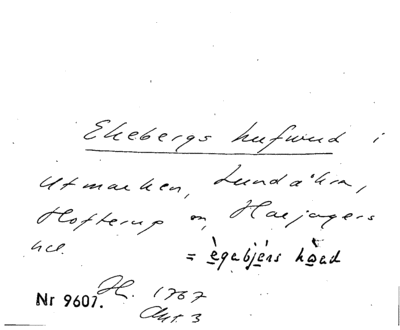 Ekebergs hufwud i
Utmarken, Lundåkra,
Hofterup sn, Harjagers
hd.
= ègəbjérs hòəd
Nr 9607.
H. 1767
Akt. 3